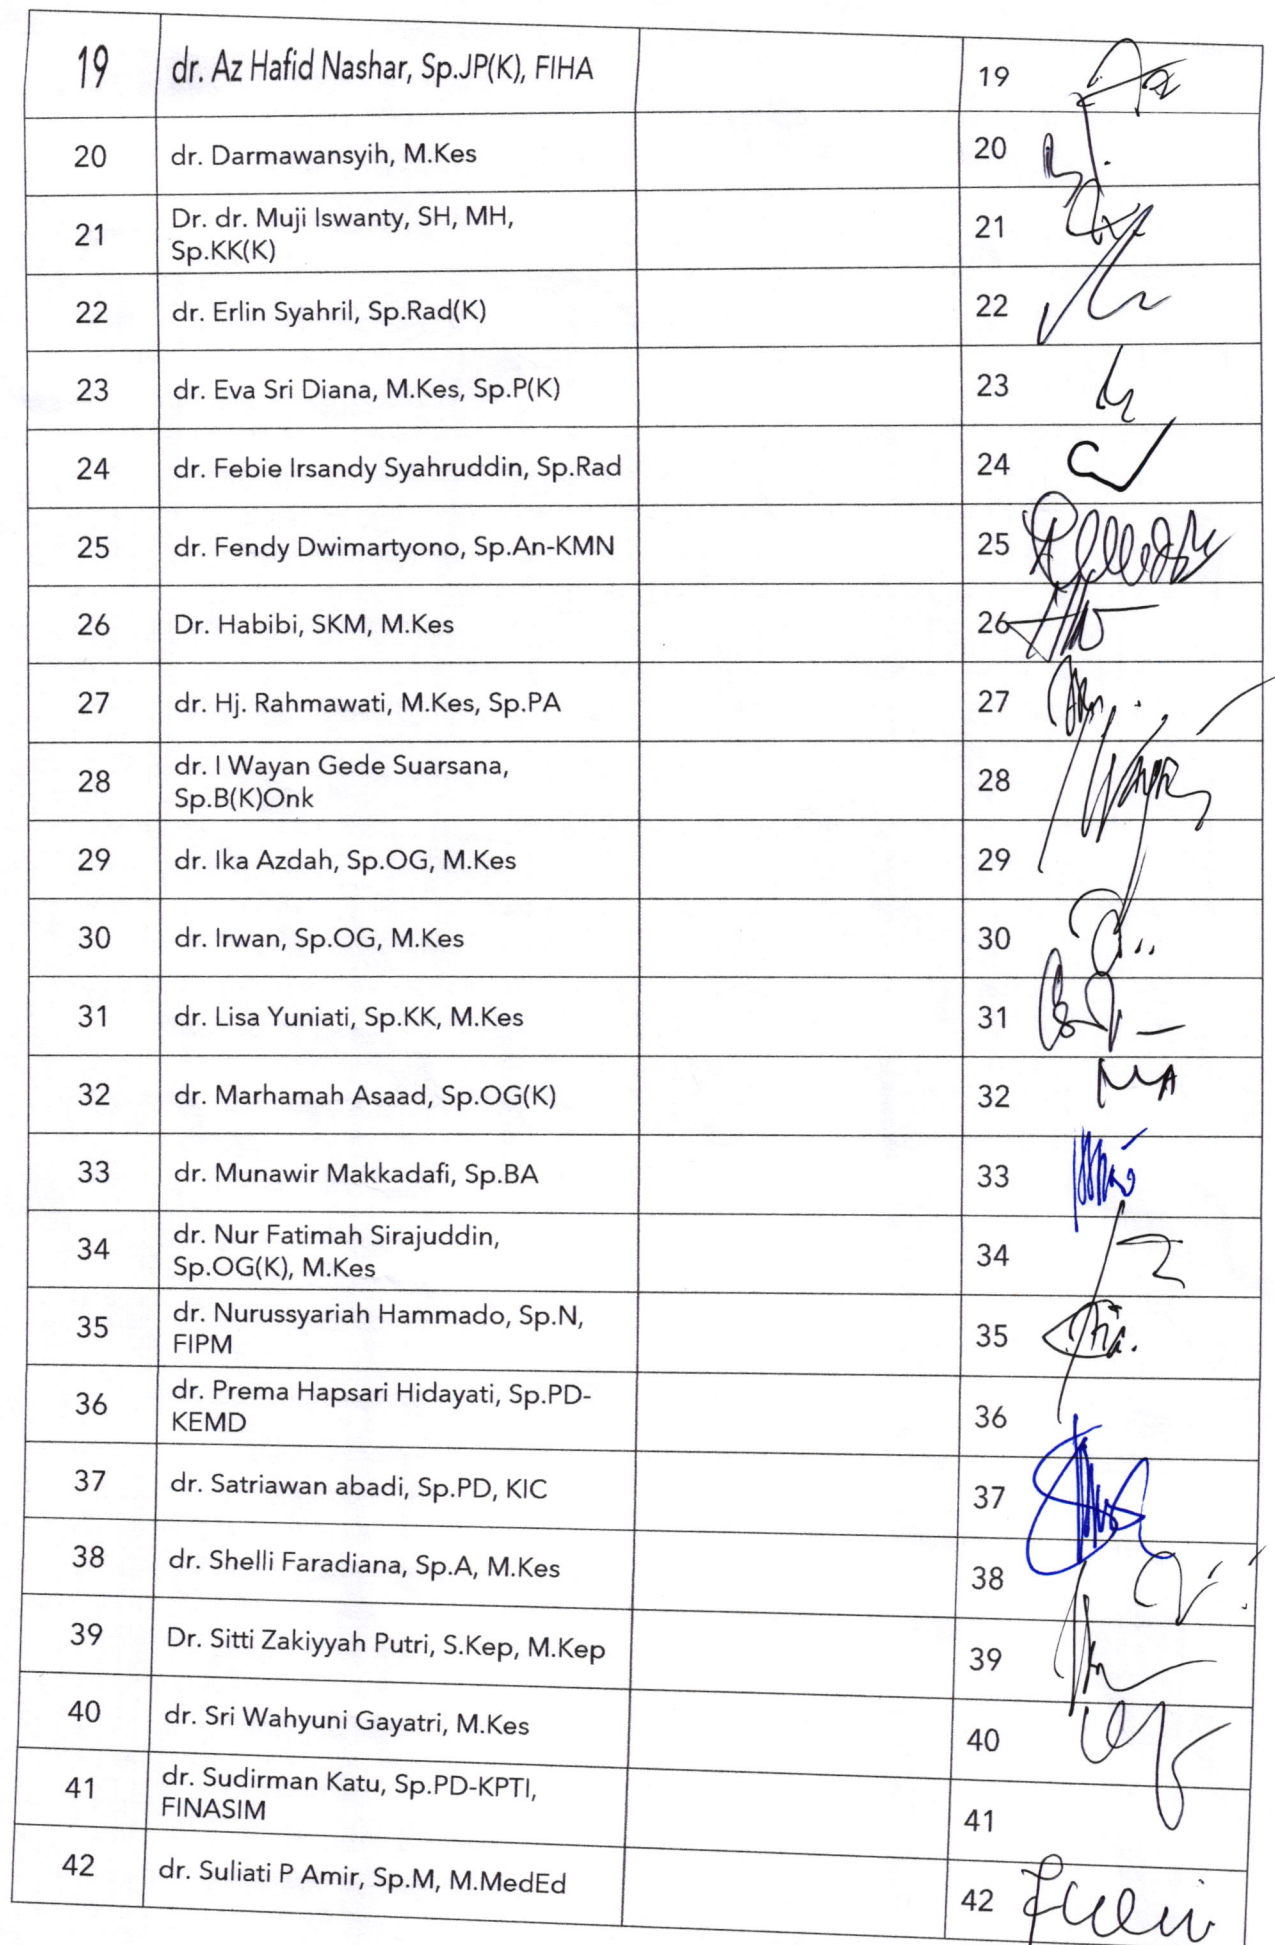 19 dr. Az Hafid Nashar, Sp.JP(K), FIHA 19
20 dr. Darmawansyih, M.Kes 20
21 Dr. dr. Muji Iswanty, SH, MH,
Sp.KK(K) 21
22 dr. Erlin Syahril, Sp.Rad(K) 22
23 dr. Eva Sri Diana, M.Kes, Sp.P(K) 23
24 dr. Febie Irsandy Syahruddin, Sp.Rad 24
25 dr. Fendy Dwimartyono, Sp.An-KMN 25
26 Dr. Habibi, SKM, M.Kes 26
27 dr. Hj. Rahmawati, M.Kes, Sp.PA 27
28 dr. I Wayan Gede Suarsana,
Sp.B(K)Onk 28
29 dr. Ika Azdah, Sp.OG, M.Kes 29
30 dr. Irwan, Sp.OG, M.Kes 30
31 dr. Lisa Yuniati, Sp.KK, M.Kes 31
32 dr. Marhamah Asaad, Sp.OG(K) 32
33 dr. Munawir Makkadafi, Sp.BA 33
34 dr. Nur Fatimah Sirajuddin,
Sp.OG(K), M.Kes 34
35 dr. Nurussyariah Hammado, Sp.N,
FIPM 35
36 dr. Prema Hapsari Hidayati, Sp.PD-
KEMD 36
37 dr. Satriawan abadi, Sp.PD, KIC 37
38 dr. Shelli Faradiana, Sp.A, M.Kes 38
39 Dr. Sitti Zakiyyah Putri, S.Kep, M.Kep 39
40 dr. Sri Wahyuni Gayatri, M.Kes 40
41 dr. Sudirman Katu, Sp.PD-KPTI,
FINASIM 41
42 dr. Suliati P Amir, Sp.M, M.MedEd 42